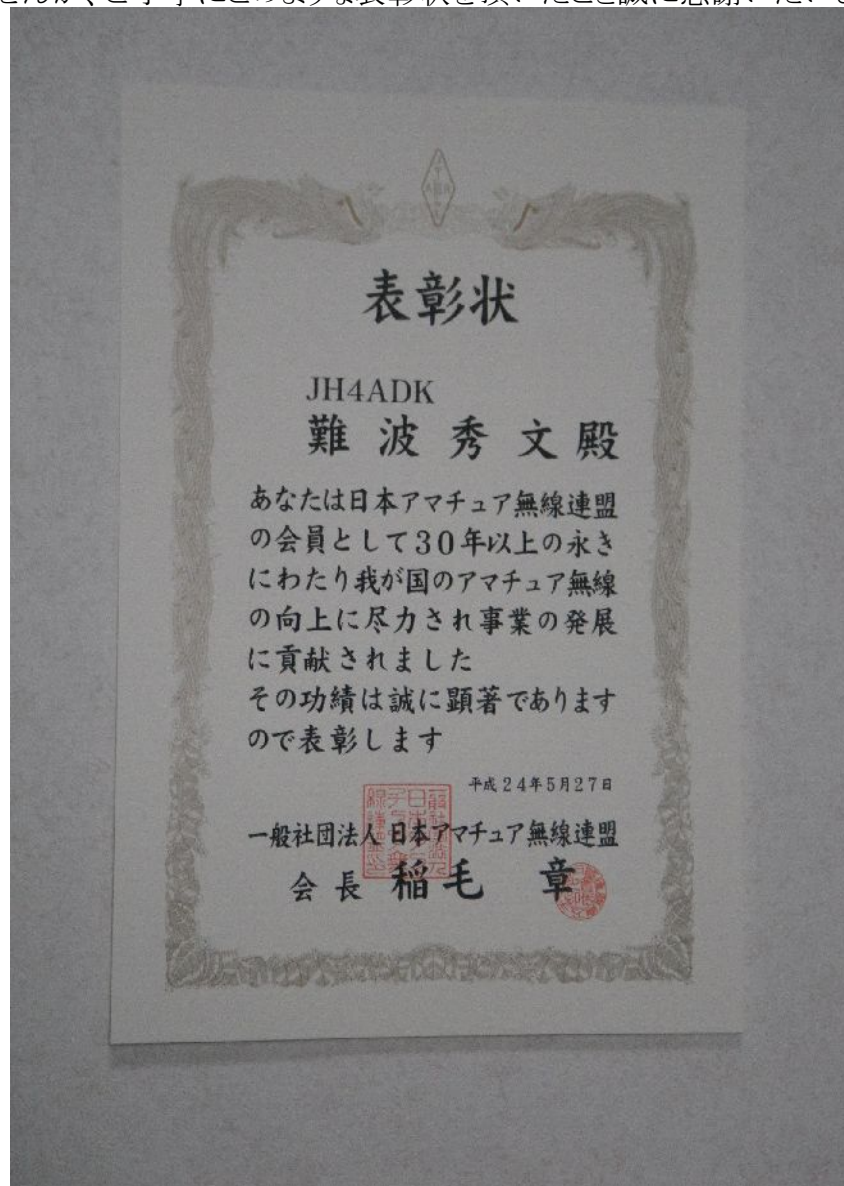 表彰状
JH4ADK
難波秀文殿
あなたは日本アマチュア無線連盟
の会員として30年以上の永き
にわたり我が国のアマチュア無線
の向上に尽力され事業の発展
に貢献されました
その功績は誠に顕著であります
ので表彰します
平成24年5月27日
一般社団法人 日本アマチュア無線連盟
会長 稲毛 章